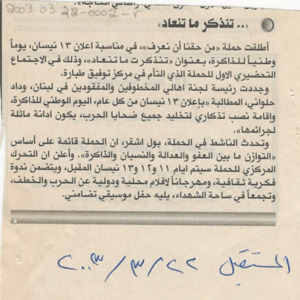 2003 03 22-0002-r
«.. تنذكر ما تنعاد»
أطلقت حملة «من حقنا أن نعرف»، في مناسبة اعلان ١٣ نيسان، يوماً
وطنياً للذاكرة، بعنوان «تنذكر ت ما تنعاد»، وذلك في الاجتماع
التحضيري الاول للحملة الذي التأم في مركز توفيق طبارة.
وجددت رئيسة لجنة اهالي المخطوفين والمفقودين في لبنان، وداد
حلواني، المطالبة «بإعلان ١٣ نيسان من كل عام، اليوم الوطني للذاكرة،
وإقامة نصب تذكاري لتخليد جميع ضحايا الحرب، يكون ادانة ماثلة
لجرائمها».
وتحدث الناشط في الحملة، بول اشقر، ان الحملة قائمة على أساس
«التوازن ما بين العفو والعدالة والنسيان والذاكرة». وأعلن ان التحرك
المركزي للحملة سيتم ايام ١١ و١٢ و١٣ نيسان المقبل، ويتضمن ندوة
فكرية ثقافية، ومهرجاناً لافلام محلية ودولية عن الحرب والخطف،
وتجمعاً في ساحة الشهداء، يليه حفل موسيقي تضامني.
المستقبل ٢٢ / ٣ / ٢٠٠٣